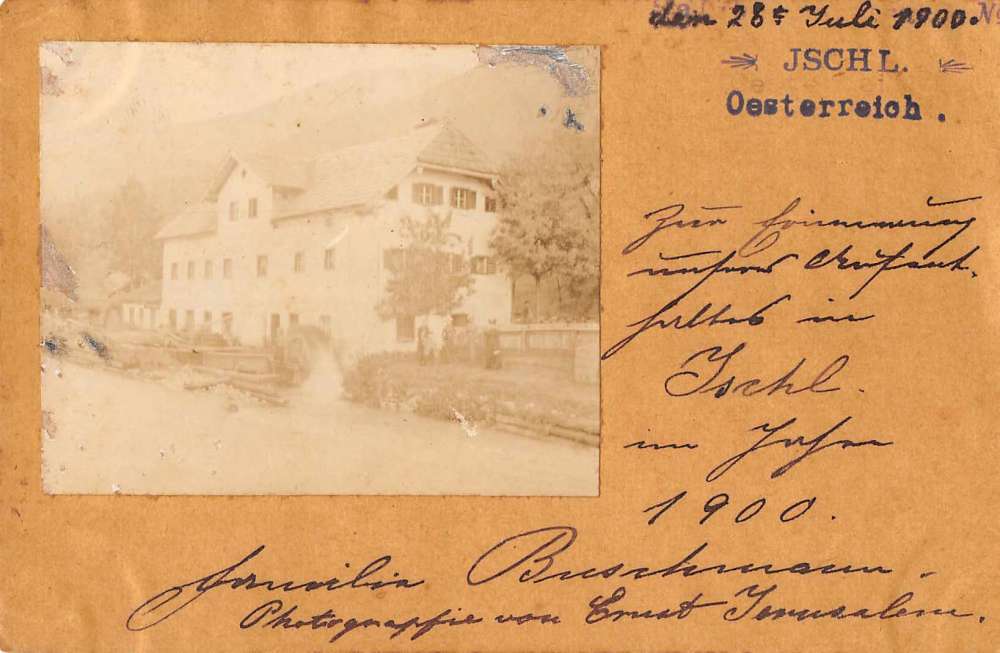 den 28t Juli 1900.
JSCHL.
Oesterreich.
Zur Erinnerung
unseres Aufent-
haltes in
Ischl.
im Jahre
1900.
Familie Buschmann.
Photographie von Ernst Jerusalem.